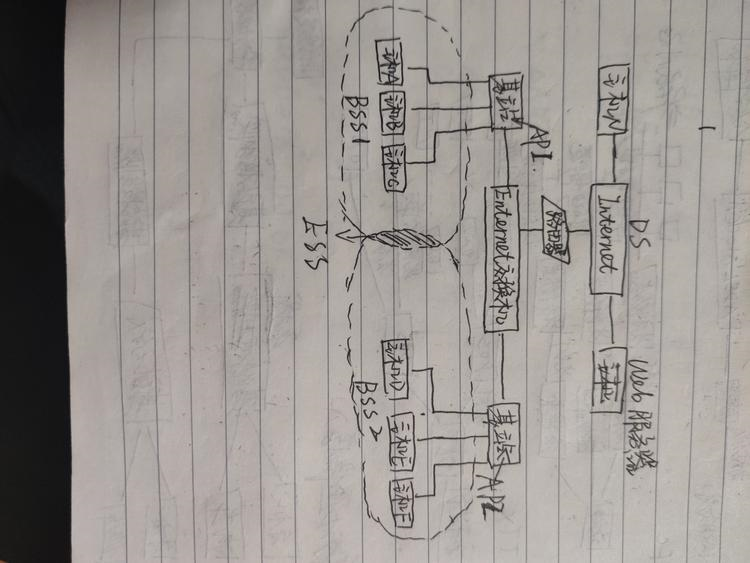 DS
Web服务器
主机N
Internet
主机
路由器
Enternet交换机
基站
AP1
基站
AP2
主机A
主机B
主机C
主机D
主机E
主机F
BSS1
BSS2
ESS